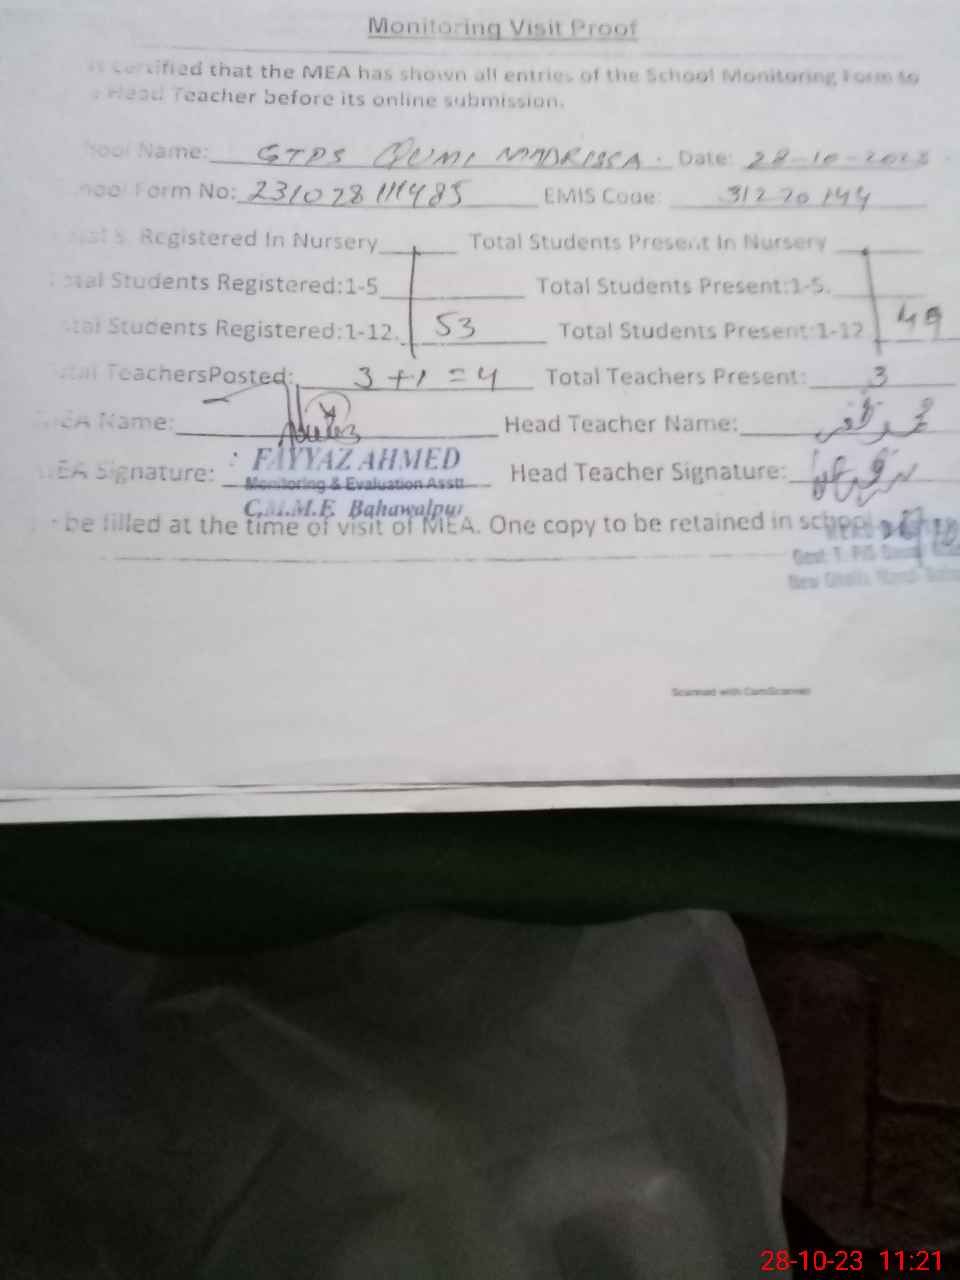 Monitoring Visit Proof
certified that the MEA has shown all entries of the School Monitoring Form to
Head Teacher before its online submission.
hool Name: GTPS QUMI MADRISSA. Date: 28-10-2023
hool Form No: 231028111485 EMIS Code: 31220144
Registered In Nursery Total Students Present In Nursery
tal Students Registered:1-5 Total Students Present:1-5.
tal Students Registered:1-12. 53 Total Students Present:1-12 49
tal TeachersPosted: 3+1=4 Total Teachers Present: 3
EA Name: Head Teacher Name:
MEA Signature: FAYYAZ AHMED Head Teacher Signature:
Monitoring & Evaluation Asstt
C.M.M.F. Bahawalpur
be filled at the time of visit of MEA. One copy to be retained in school
Scanned with CamScanner
28-10-23 11:21